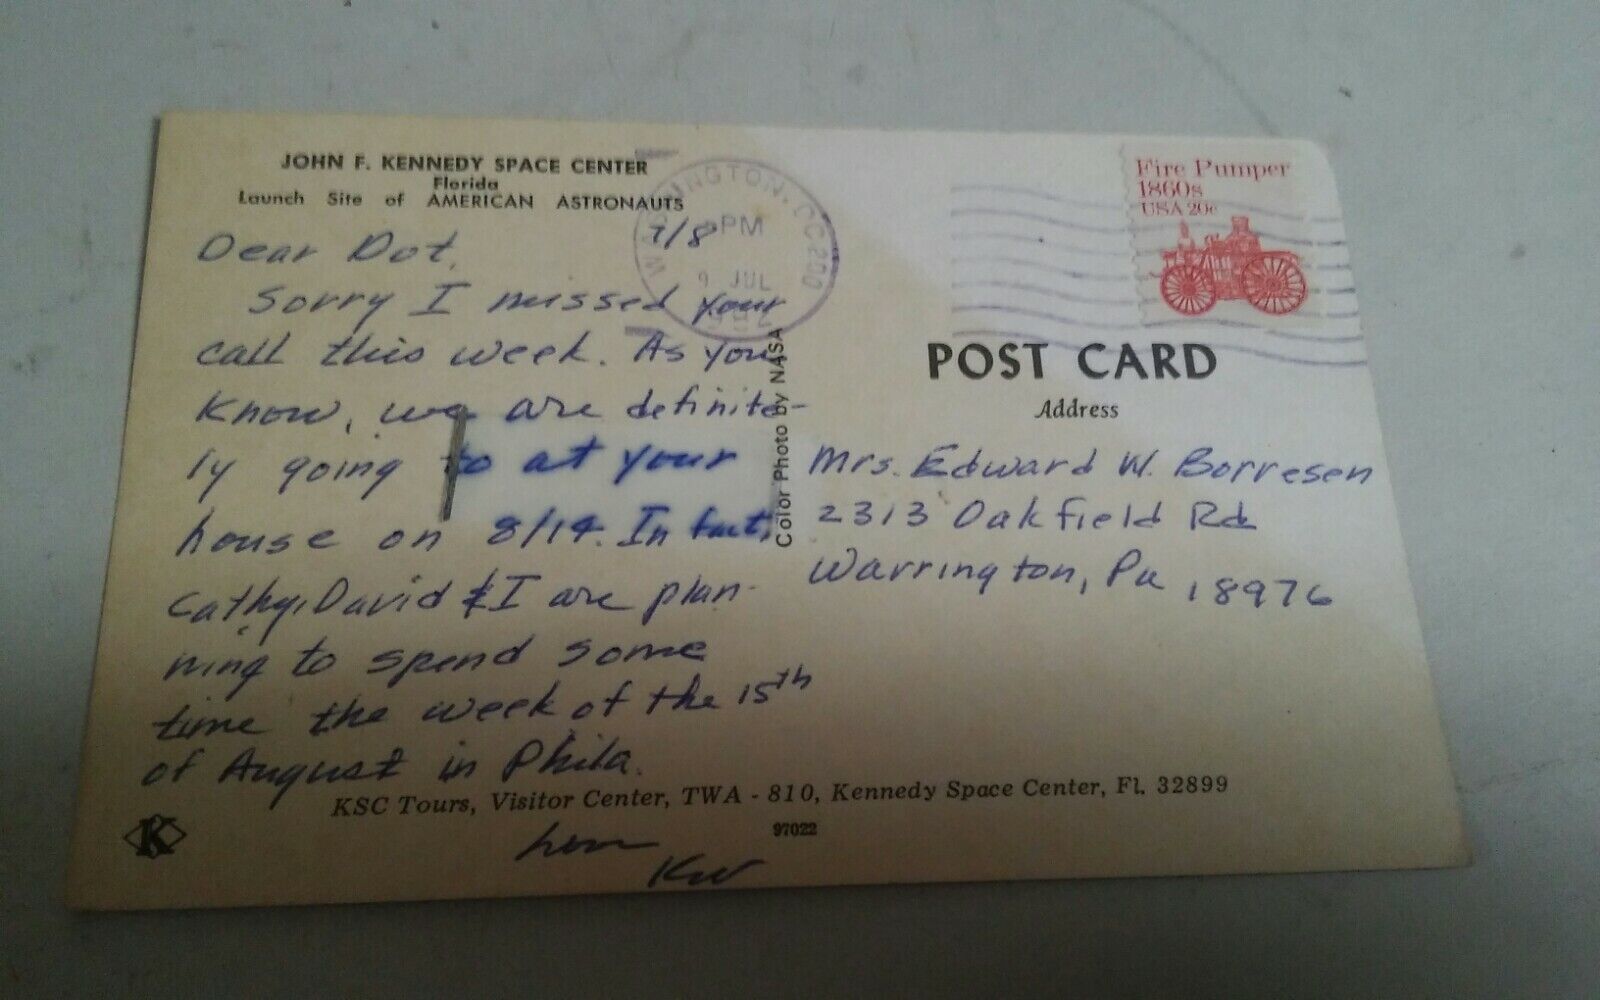 JOHN F. KENNEDY SPACE CENTER
Florida
Launch Site of AMERICAN ASTRONAUTS
7/8
Dear Dot,
Sorry I missed your
call this week. As you
know, we are definite-
ly going to at your
house on 8/14. In fact,
Cathy, David & I are plan-
ning to spend some
time the week of the 15th
of August in Phila.
KW
Color Photo by NASA
KSC Tours, Visitor Center, TWA - 810, Kennedy Space Center, Fl. 32899
97022
K
PM
9 JUL
Fire Pumper
1860s
USA 20c
POST CARD
Address
Mrs. Edward W. Borresen
2313 Oakfield Rd
Warrington, Pa 18976